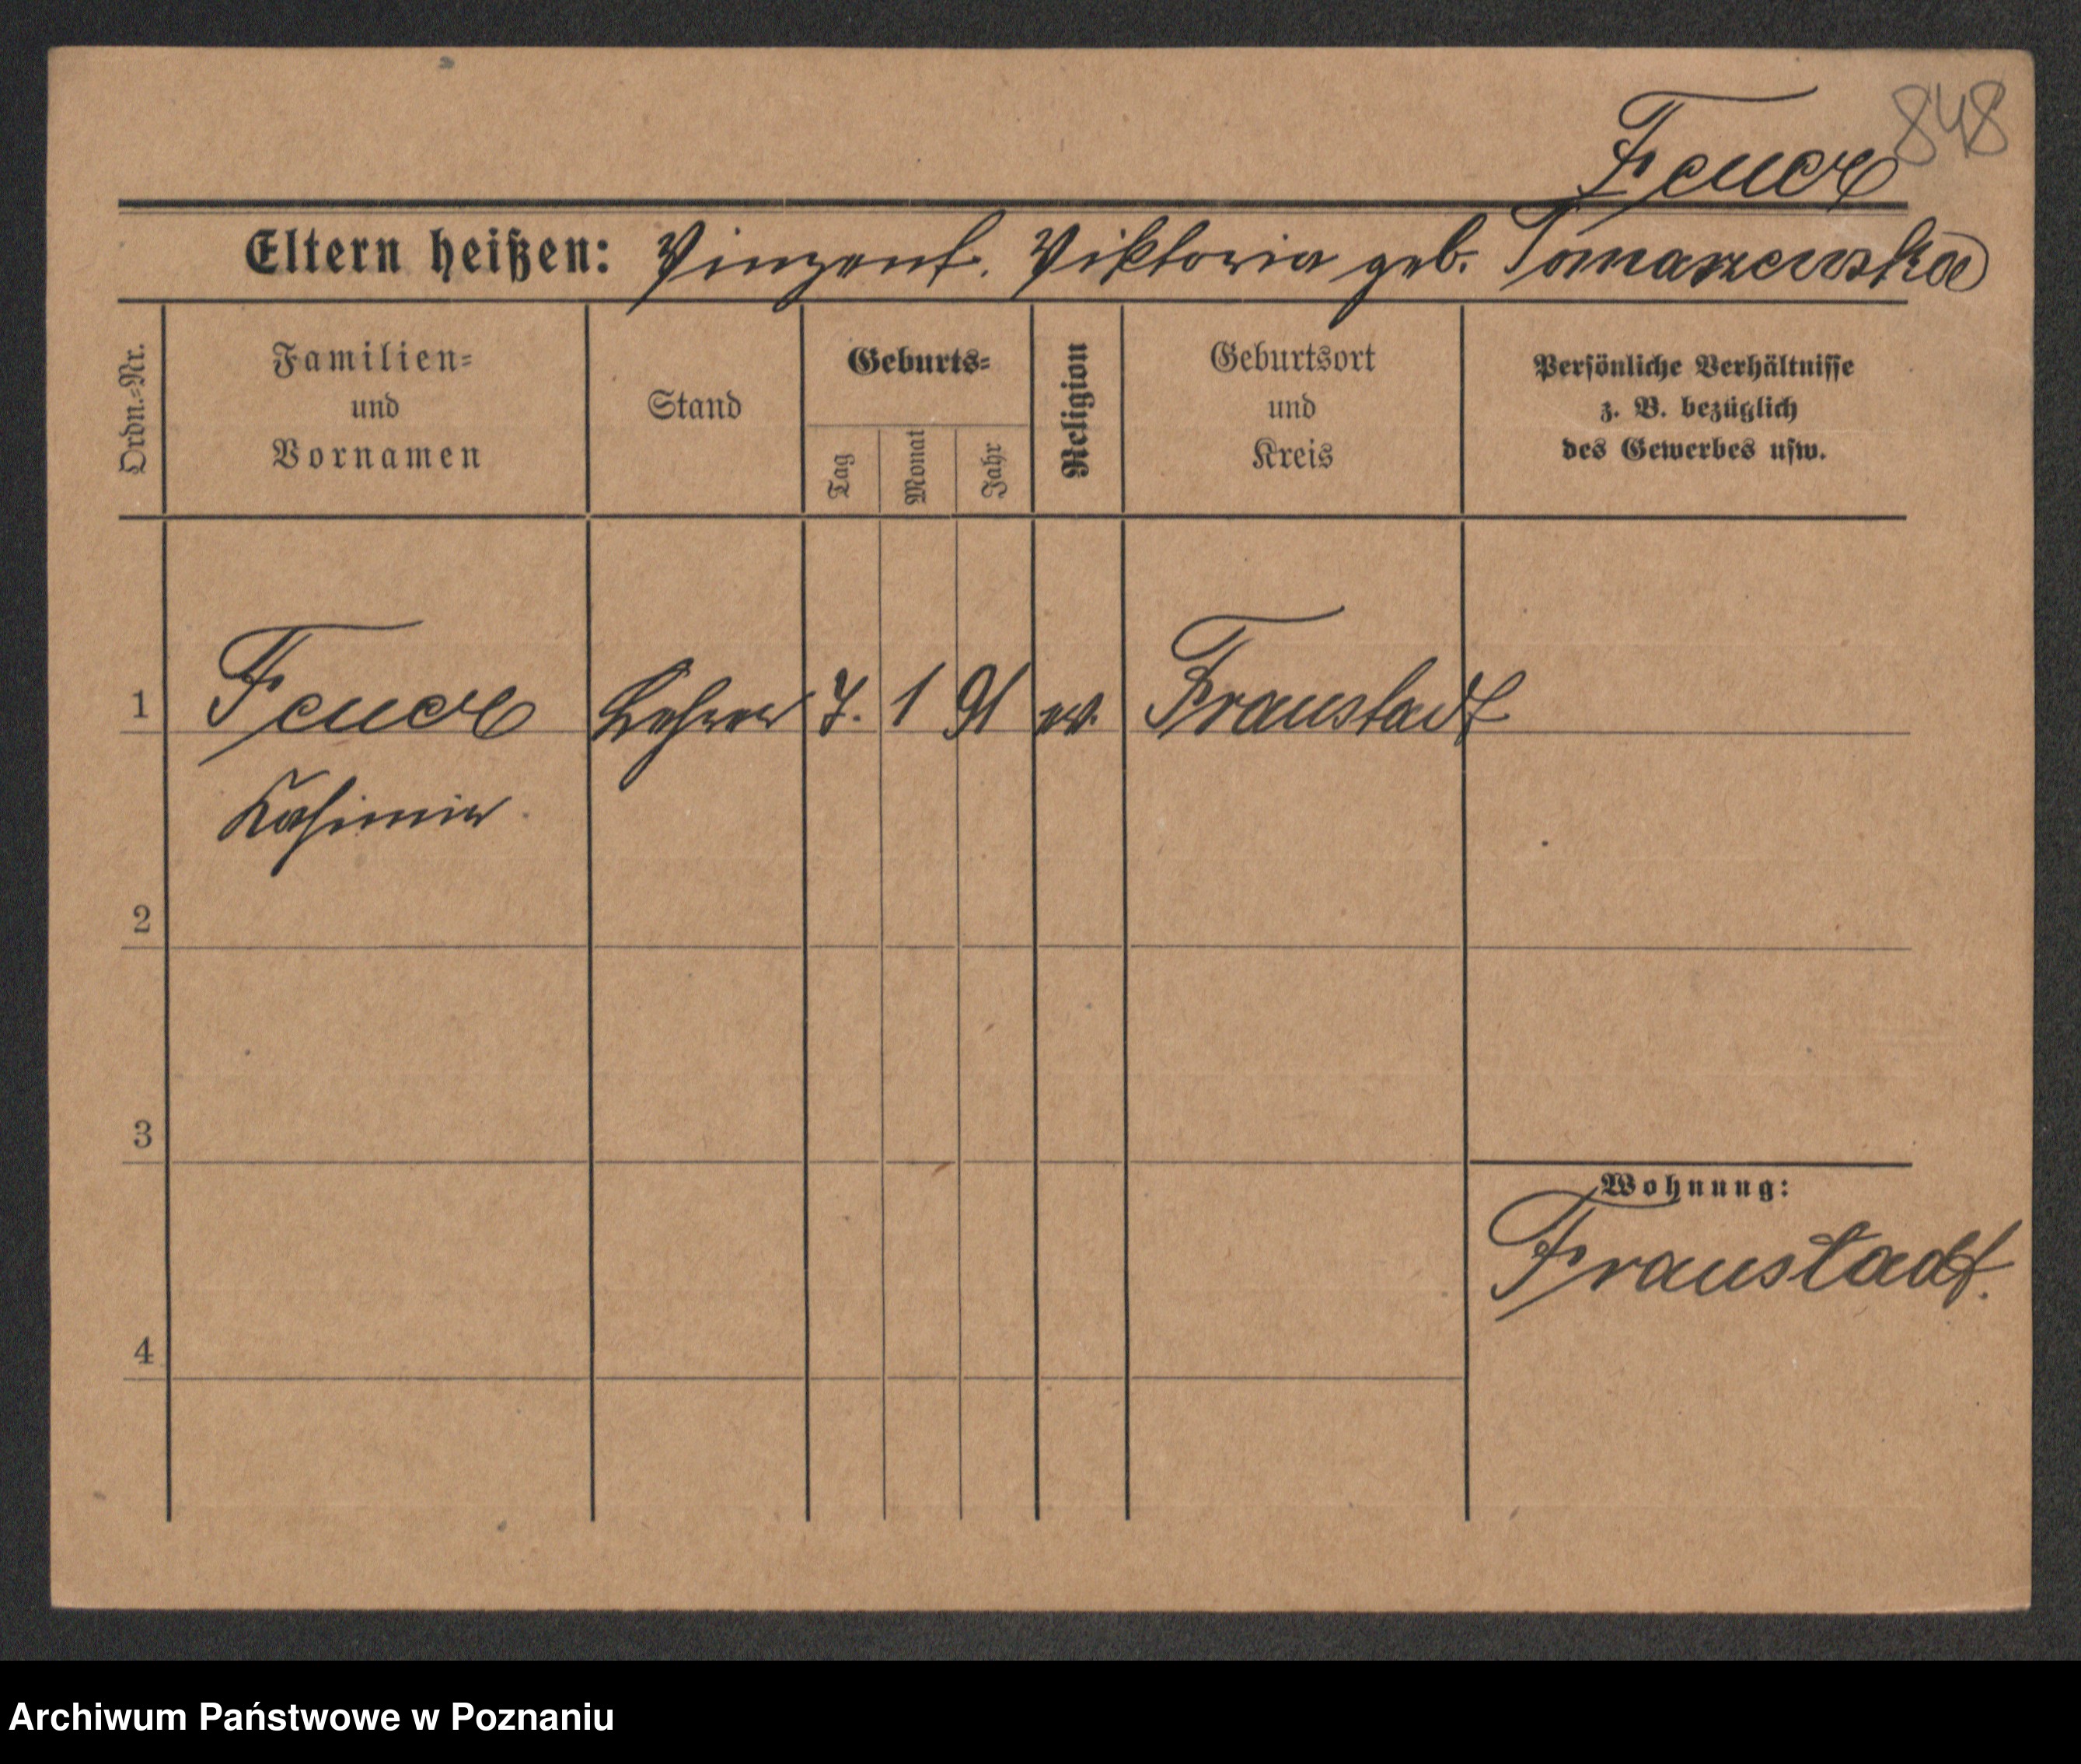 848
Feuer
Eltern heißen: Vinzent. Viktoria geb. Tomaszewska
Ordn.=Nr.
Familien=
und
Vornamen
Stand
Geburts=
Tag
Monat
Jahr
Religion
Geburtsort
und
Kreis
Persönliche Verhältnisse
z. B. bezüglich
des Gewerbes usw.
1 Feuer Lehrer 7. 1 91 Fraustadt
Kasimir
2
3
Wohnung:
Fraustadt.
4
Archiwum Państwowe w Poznaniu